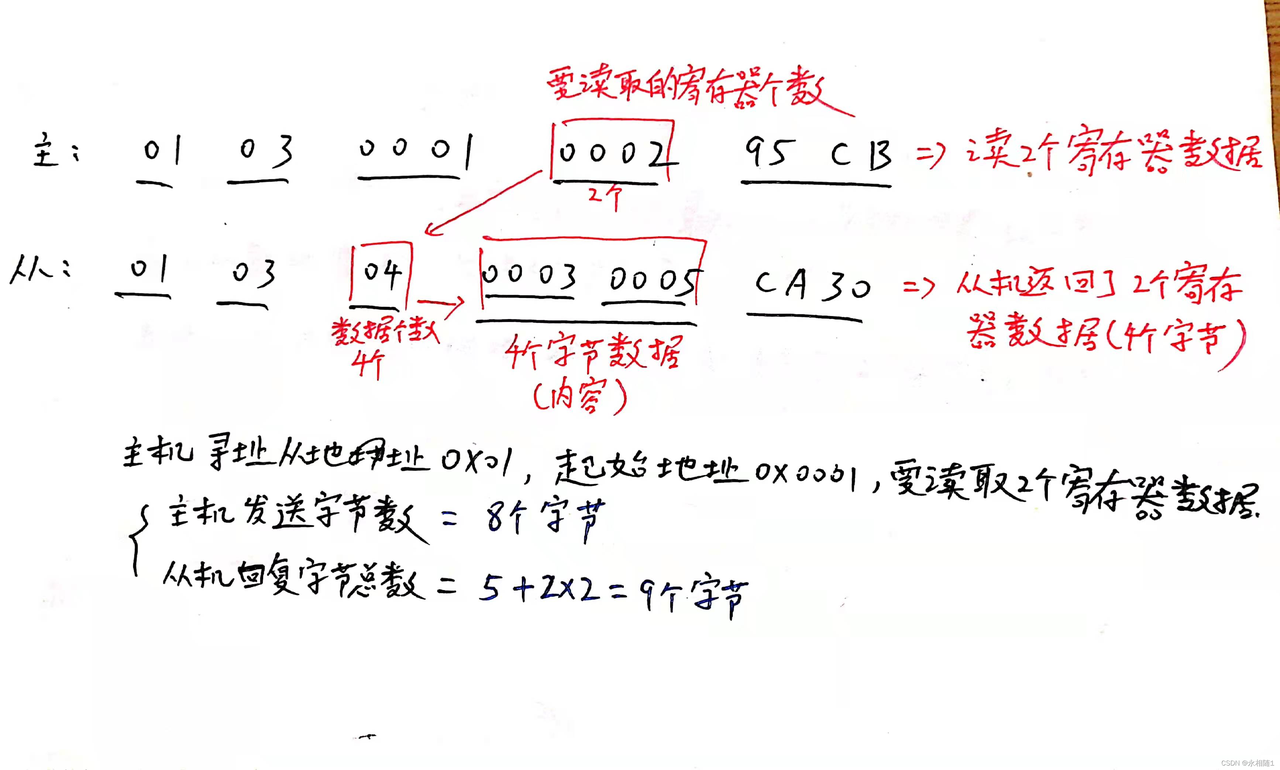 要读取的寄存器个数
主: 01 03 0001 0002 95 CB => 读2个寄存器数据
2个
从: 01 03 04 0003 0005 CA30 => 从机返回了2个寄存
器数据(4个字节)
数据个数
4个
4个字节数据
(内容)
主机寻址从地址0X01, 起始地址0X0001, 要读取2个寄存器数据.
主机发送字节数 = 8个字节
从机回复字节总数 = 5+2×2=9个字节
CSDN @永相随1